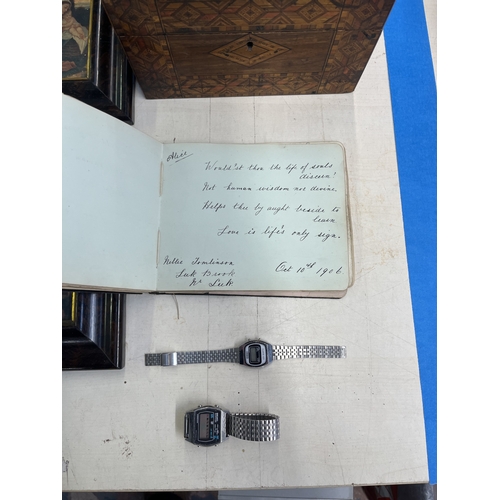 Alice
Would'st thou the life of souls
discern?
Not human wisdom nor divine
Helps thee by aught beside to
learn
Love is life's only sign.
Nellie Tomlinson
Leek Brook
Nr Leek
Oct 10th 1906